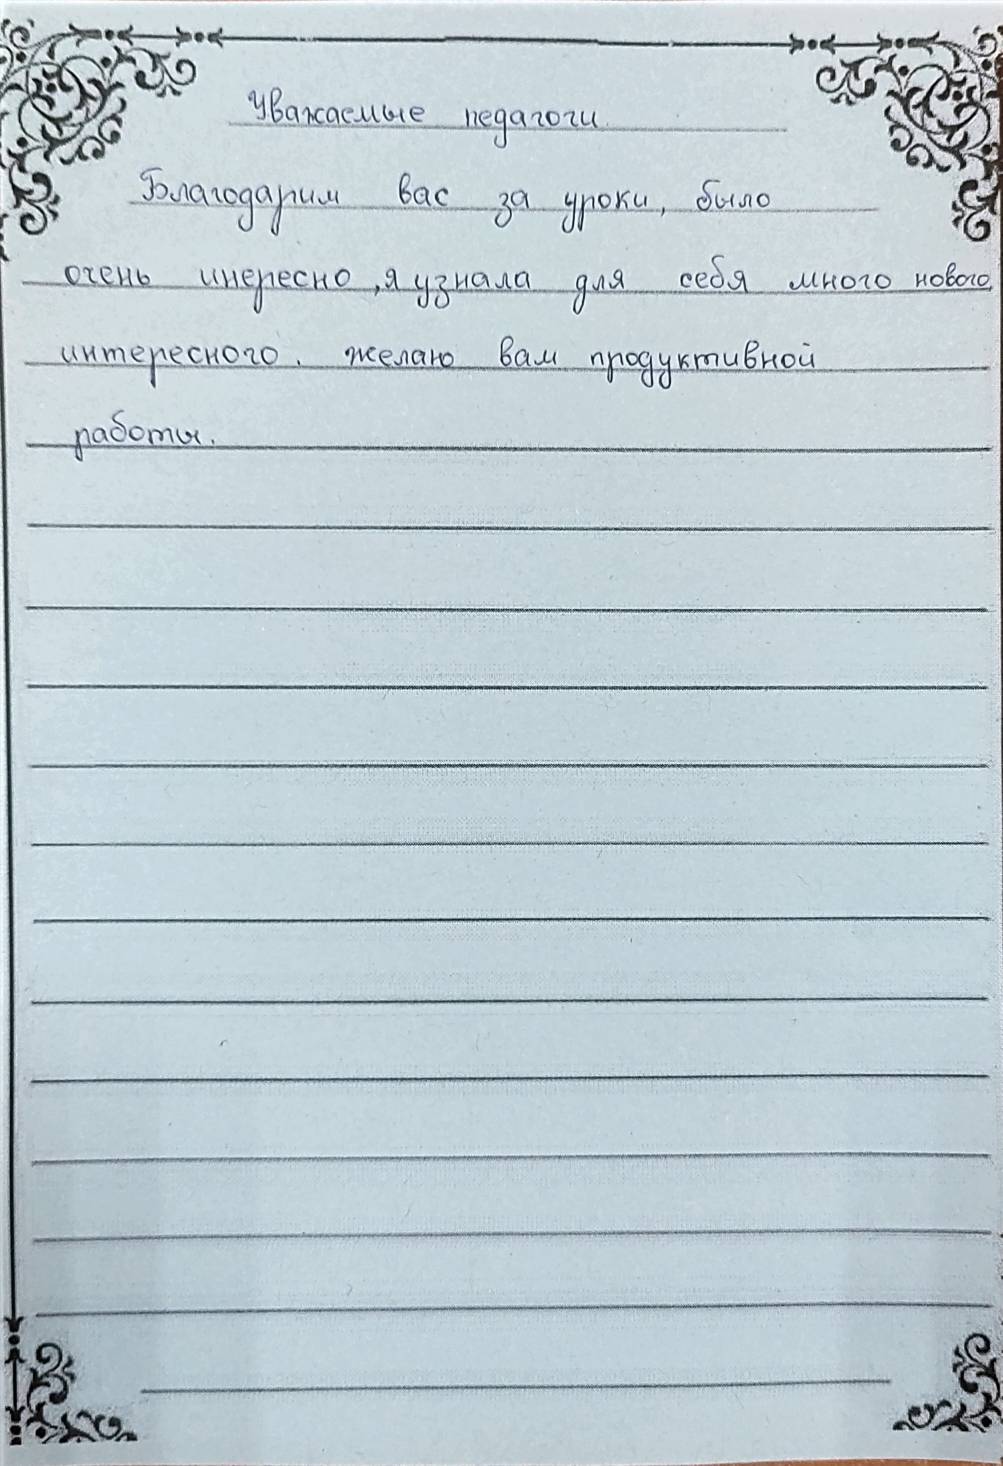 Уважаемые педагоги.
Благодарим вас за уроки, было
очень инересно, я узнала для себя много нового,
интересного. желаю вам продуктивной
работы.